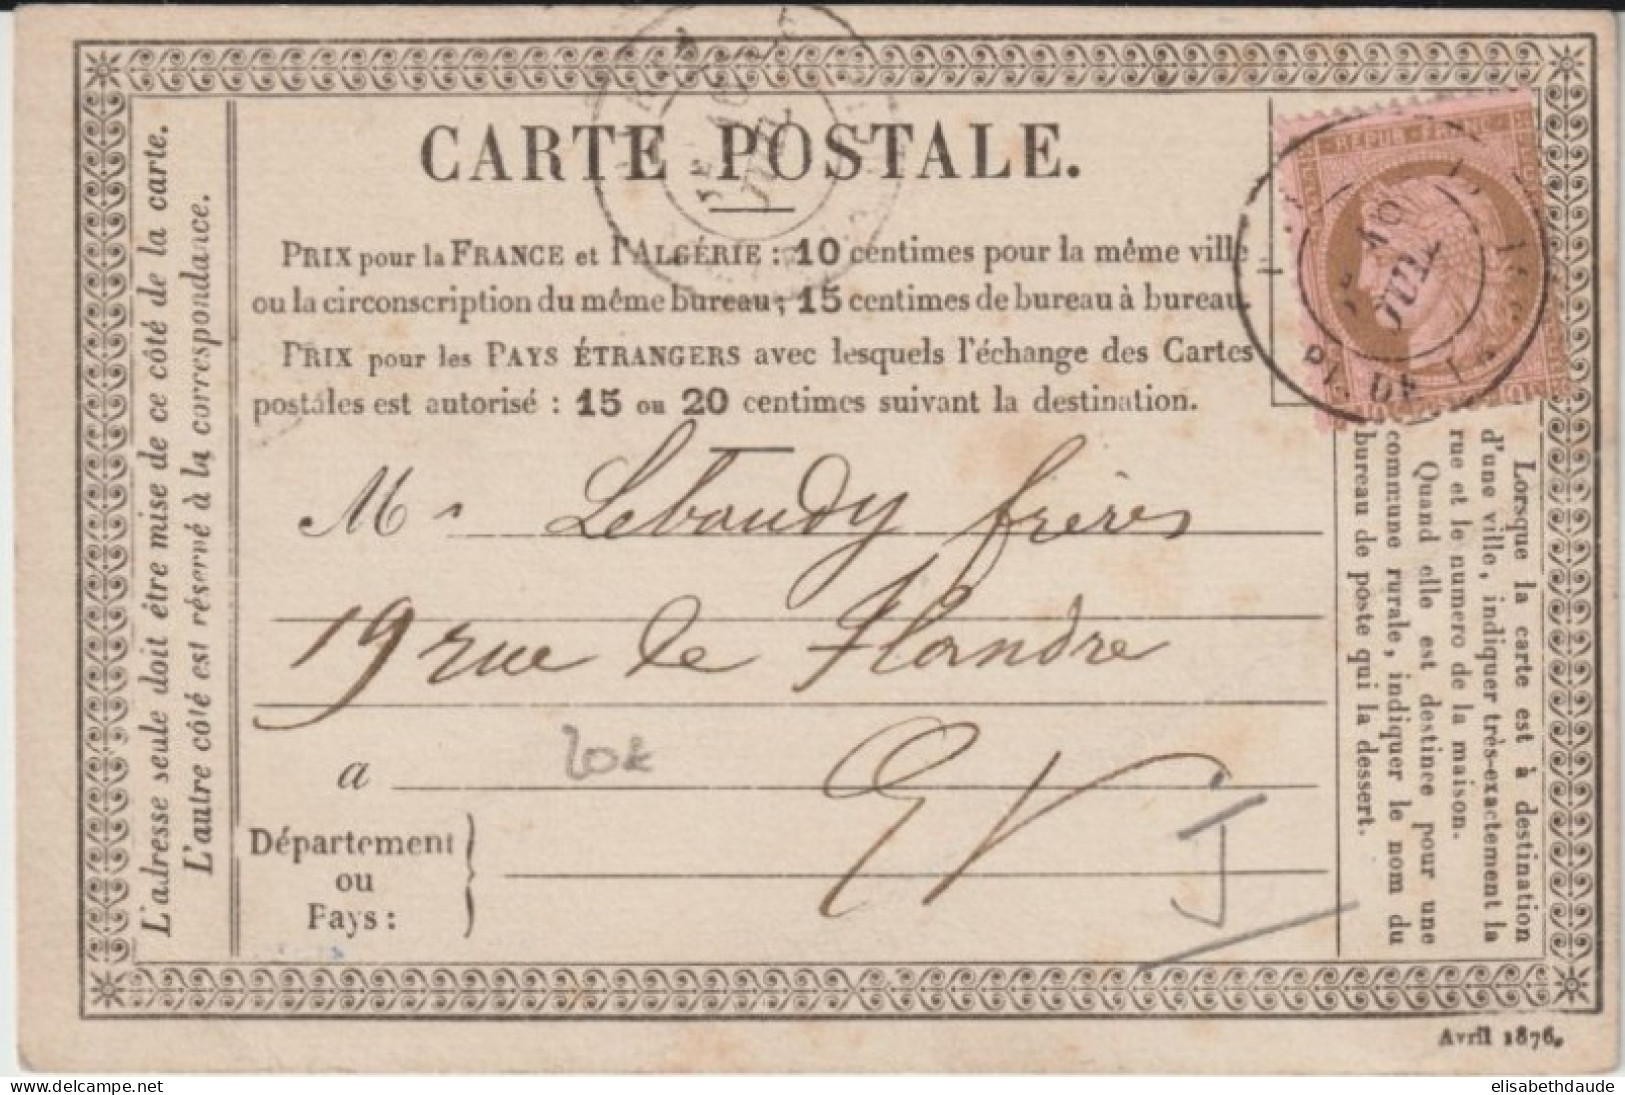 CARTE POSTALE.
PRIX pour la FRANCE et l'ALGÉRIE : 10 centimes pour la même ville
ou la circonscription du même bureau ; 15 centimes de bureau à bureau.
PRIX pour les PAYS ÉTRANGERS avec lesquels l'échange des Cartes
postales est autorisé : 15 ou 20 centimes suivant la destination.
M rs Lebaudy frères
19 rue de Flandre
a EV
Département
ou
Pays :
L'adresse seule doit être mise de ce côté de la carte.
L'autre côté est réservé à la correspondance.
REPUB FRANC
10
JUIL
PL. DE LA
10
JUIL
Lorsque la carte est à destination
d'une ville, indiquer très-exactement la
rue et le numero de la maison.
Quand elle est destinée pour une
commune rurale, indiquer le nom du
bureau de poste qui la dessert.
Avril 1876.
delcampe.net
elisabethdaude